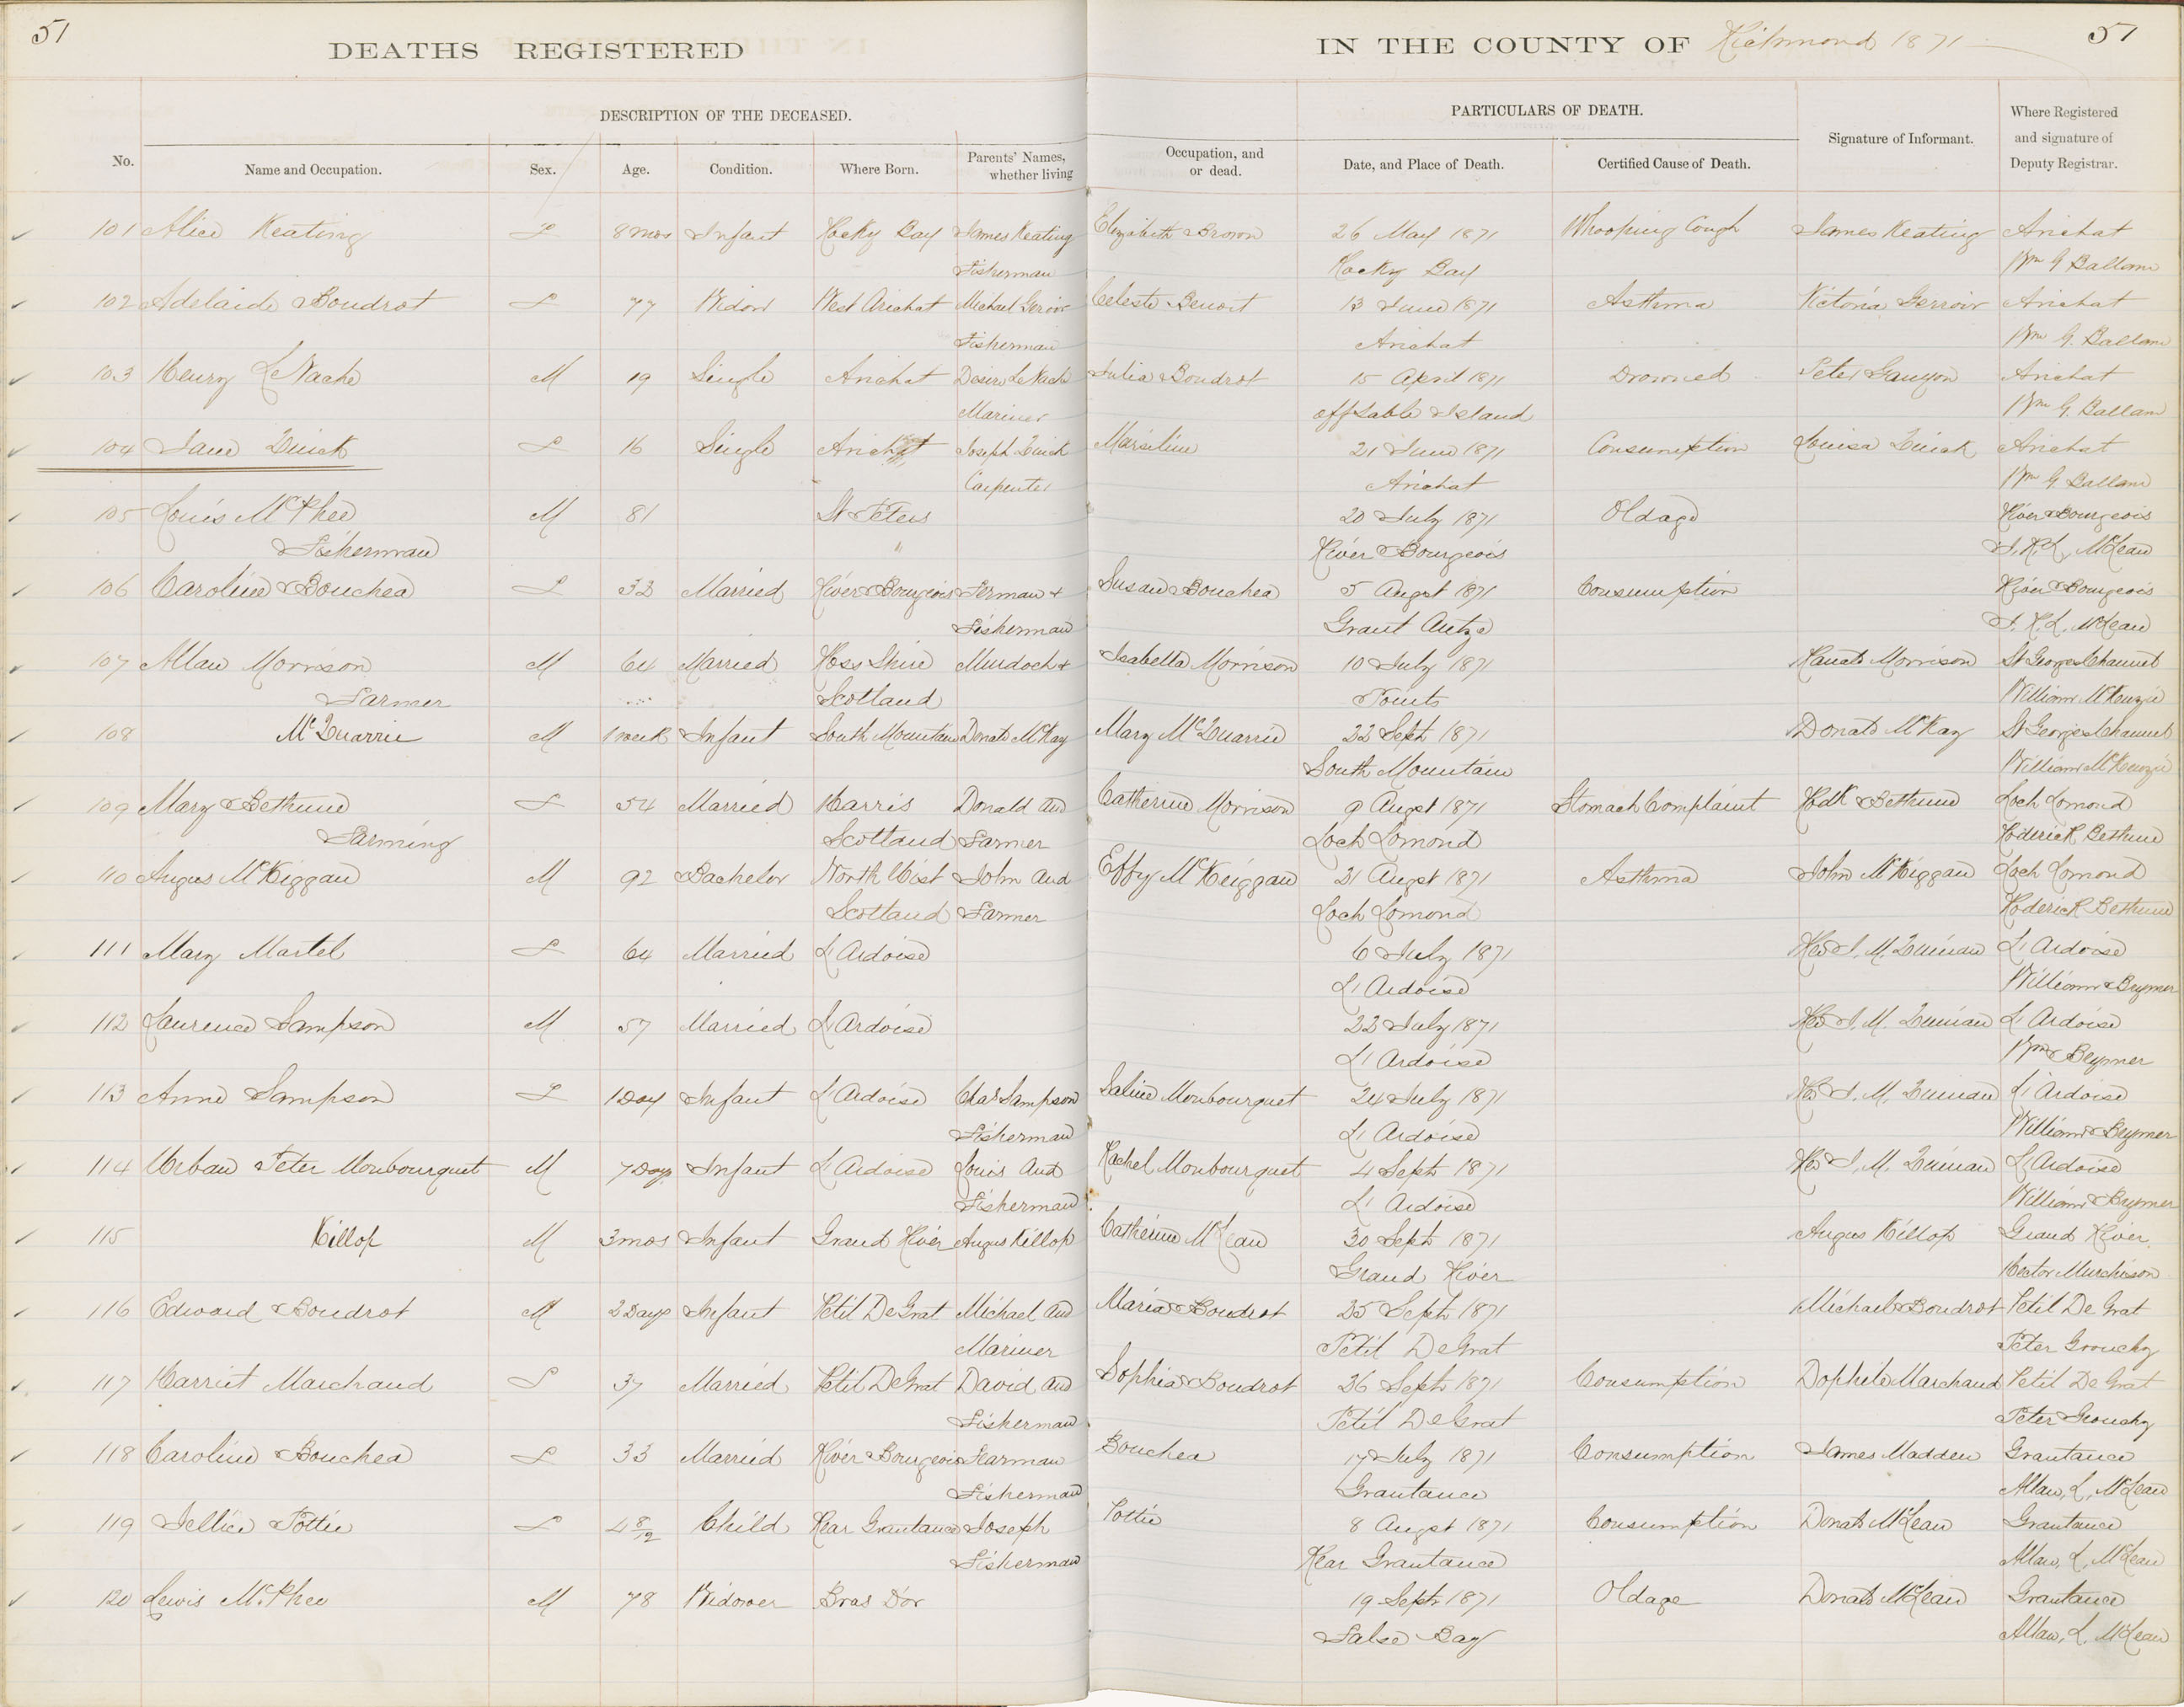 51
DEATHS REGISTERED
IN THE COUNTY OF Richmond 1871
51
DESCRIPTION OF THE DECEASED.
PARTICULARS OF DEATH.
No.
Name and Occupation.
Sex.
Age.
Condition.
Where Born.
Parents' Names, whether living
Occupation, and or dead.
Date, and Place of Death.
Certified Cause of Death.
Signature of Informant.
Where Registered and signature of Deputy Registrar.
101 Alice Keating F 8 mos Infant Rocky Bay James Keating Elizabeth Brown 26 May 1871 Whooping Cough James Keating Arichat
Fisherman Rocky Bay Wm G Ballam
102 Adelaide Boudrot F 77 Widow West Arichat Michael Gerroir Celeste Benoit 13 June 1871 Asthma Victoria Gerroir Arichat
Fisherman Arichat Wm G. Ballam
103 Henry LeVache M 19 Single Arichat Desire LeVache Julia Boudrot 15 April 1871 Drowned Peter Arichat
Mariner off Sable Island Wm G. Ballam
104 Jane Quick F 16 Single Arichat Joseph Quick Marseline 21 June 1871 Consumption Louisa Quick Arichat
Carpenter Arichat Wm G Ballam
105 Louis McPhee M 81 St Peters 20 July 1871 Oldage River Bourgeois
Fisherman " River Bourgeois McLean
106 Caroline Bouchea F 33 Married River Bourgeois Ferman + Susan Bouchea 5 Augst 1871 Consumption River Bourgeois
Fisherman Grant Antze McLean
107 Allan Morrison M 64 Married Ross Shire Murdoch + Isabella Morrison 10 July 1871 Morrison St Georges Channel
Farmer Scotland Points William McKenzie
108 McQuarrie M 1 week Infant South Mountain Donald McKay Mary McQuarrie 22 Sept 1871 Donald McKay St Georges Channel
South Mountain William McKenzie
109 Mary Bethune F 54 Married Harris Donald and Catherine Morrison 9 Augst 1871 Stomach Complaint Rodk Bethune Loch Lomond
Farming Scotland Farmer Loch Lomond Roderick Bethune
110 Angus McKiggan M 92 Bachelor North Uist John and Effy McKeiggan 21 Augst 1871 Asthma John McKiggan Loch Lomond
Scotland Farmer Loch Lomond Roderick Bethune
111 Mary Martel F 64 Married L'Ardoise 6 July 1871 Rev J. M. Quinan L'Ardoise
L'Ardoise William Brymer
112 Laurence Sampson M 57 Married L'Ardoise 22 July 1871 Rev J. M. Quinan L'Ardoise
L'Ardoise Wm Brymer
113 Anne Sampson F 1 Day Infant L'Ardoise Chas Sampson Saline Monbourquet 24 July 1871 Rev J. M. Quinan L'Ardoise
Fisherman L'Ardoise William Brymer
114 Urban Peter Monbourquet M 7 Days Infant L'Ardoise Louis and Rachel Monbourquet 4 Sept 1871 Rev J. M. Quinan L'Ardoise
Fisherman L'Ardoise William Brymer
115 Killop M 3 mos Infant Grand River Angus Killop Catherine McLean 30 Sept 1871 Angus Killop Grand River
Grand River Hector Murchison
116 Edward Boudrot M 2 Days Infant Petit DeGrat Michael and Maria Boudrot 25 Sept 1871 Michael Boudrot Petit De Grat
Mariner Petit DeGrat Peter Grouchy
117 Harriet Marchand F 37 Married Petit DeGrat David and Sophia Boudrot 26 Sept 1871 Consumption Dophile Marchand Petit De Grat
Fisherman Petit DeGrat Peter Grouchy
118 Caroline Bouchea F 33 Married River Bourgeois Farman Bouchea 17 July 1871 Consumption James Madden Grantance
Fisherman Grantance Allan, L, McLean
119 Jellice Pottie F 4 8/12 Child Rear Grantance Joseph Pottie 8 Augst 1871 Consumption Donald McLean Grantance
Fisherman Rear Grantance Allan, L, McLean
120 Lewis McPhee M 78 Widower Bras Dor 19 Sept 1871 Oldage Donald McLean Grantance
False Bay Allan, L. McLean